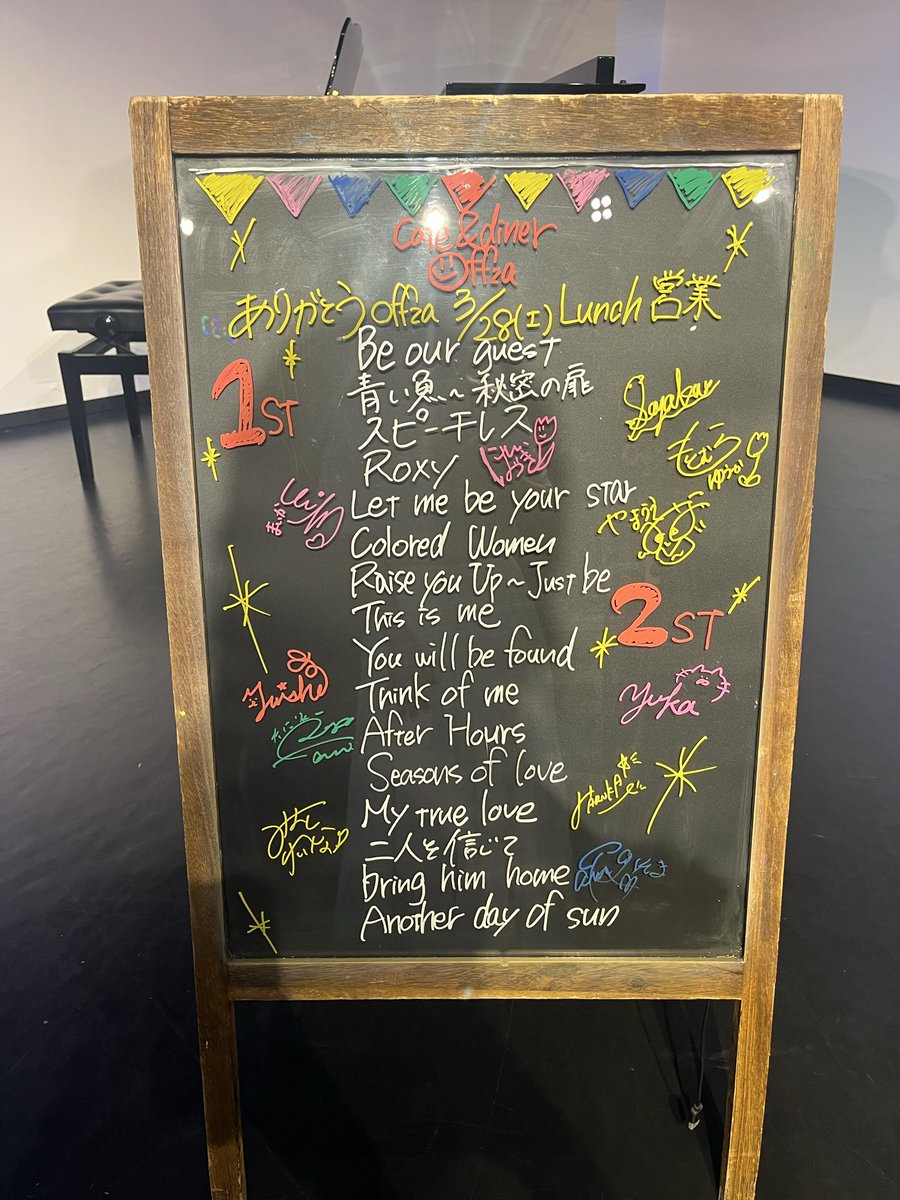 Cafe & diner
Offza
ありがとう offza 3/28(土) Lunch 営業
1ST
Be our guest
青い鳥〜秘密の扉
スピーチレス
Roxy
Let me be your star
Colored Women
Raise you Up ~ Just be
This is me
2ST
You will be found
Think of me
Yuka
After Hours
Seasons of love
HARUKA
My true love
二人を信じて
Bring him home
Another day of sun